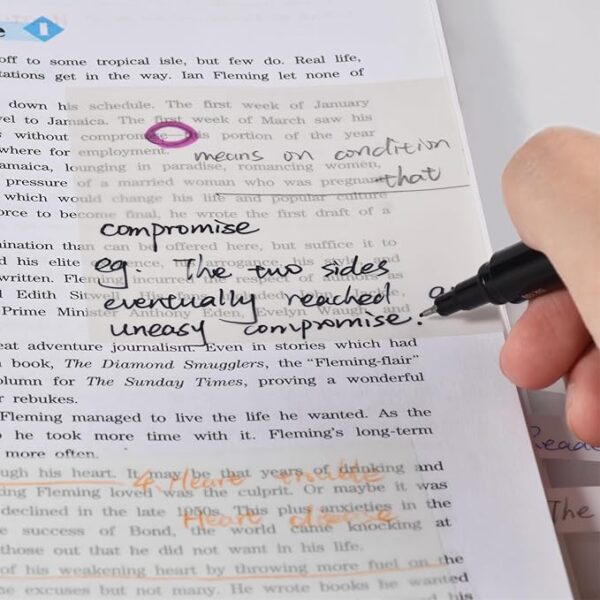 off to some tropical isle, but few do. Real life,
tations get in the way. Ian Fleming let none of
down his schedule. The first week of January
vel to Jamaica. The first week of March saw his
s without compromise—this portion of the year
where for employment.
means on condition
amaica, lounging in paradise, romancing women,
pressure of a married woman who was pregnant
that
which would change his life and popular culture
orce to become final, he wrote the first draft of a
compromise
ination than can be offered here, but suffice it to
eg. The two sides
d his elite
ence, his arrogance, his style and
written. Fleming incurred the respect of authors as
eventually reached a
d Edith Sitwell
Prime Minister Anthony Eden, Evelyn Waugh, and
uneasy compromise.
eat adventure journalism. Even in stories which had
book, The Diamond Smugglers, the “Fleming-flair”
olumn for The Sunday Times, proving a wonderful
r rebukes.
Fleming managed to live the life he wanted. As the
o he took more time with it. Fleming's long-term
more often.
ugh his heart. It may be that years of drinking and
4. Heart trouble
ing Fleming loved was the culprit. Or maybe it was
declined in the late 1950s. This plus anxieties in the
Heart disease
e success of Bond, the world came knocking at
those out that he did not want in his life.
of his weakening heart by throwing more fuel on the
e excuses but not many. He wrote books he wanted
his
Reade
The